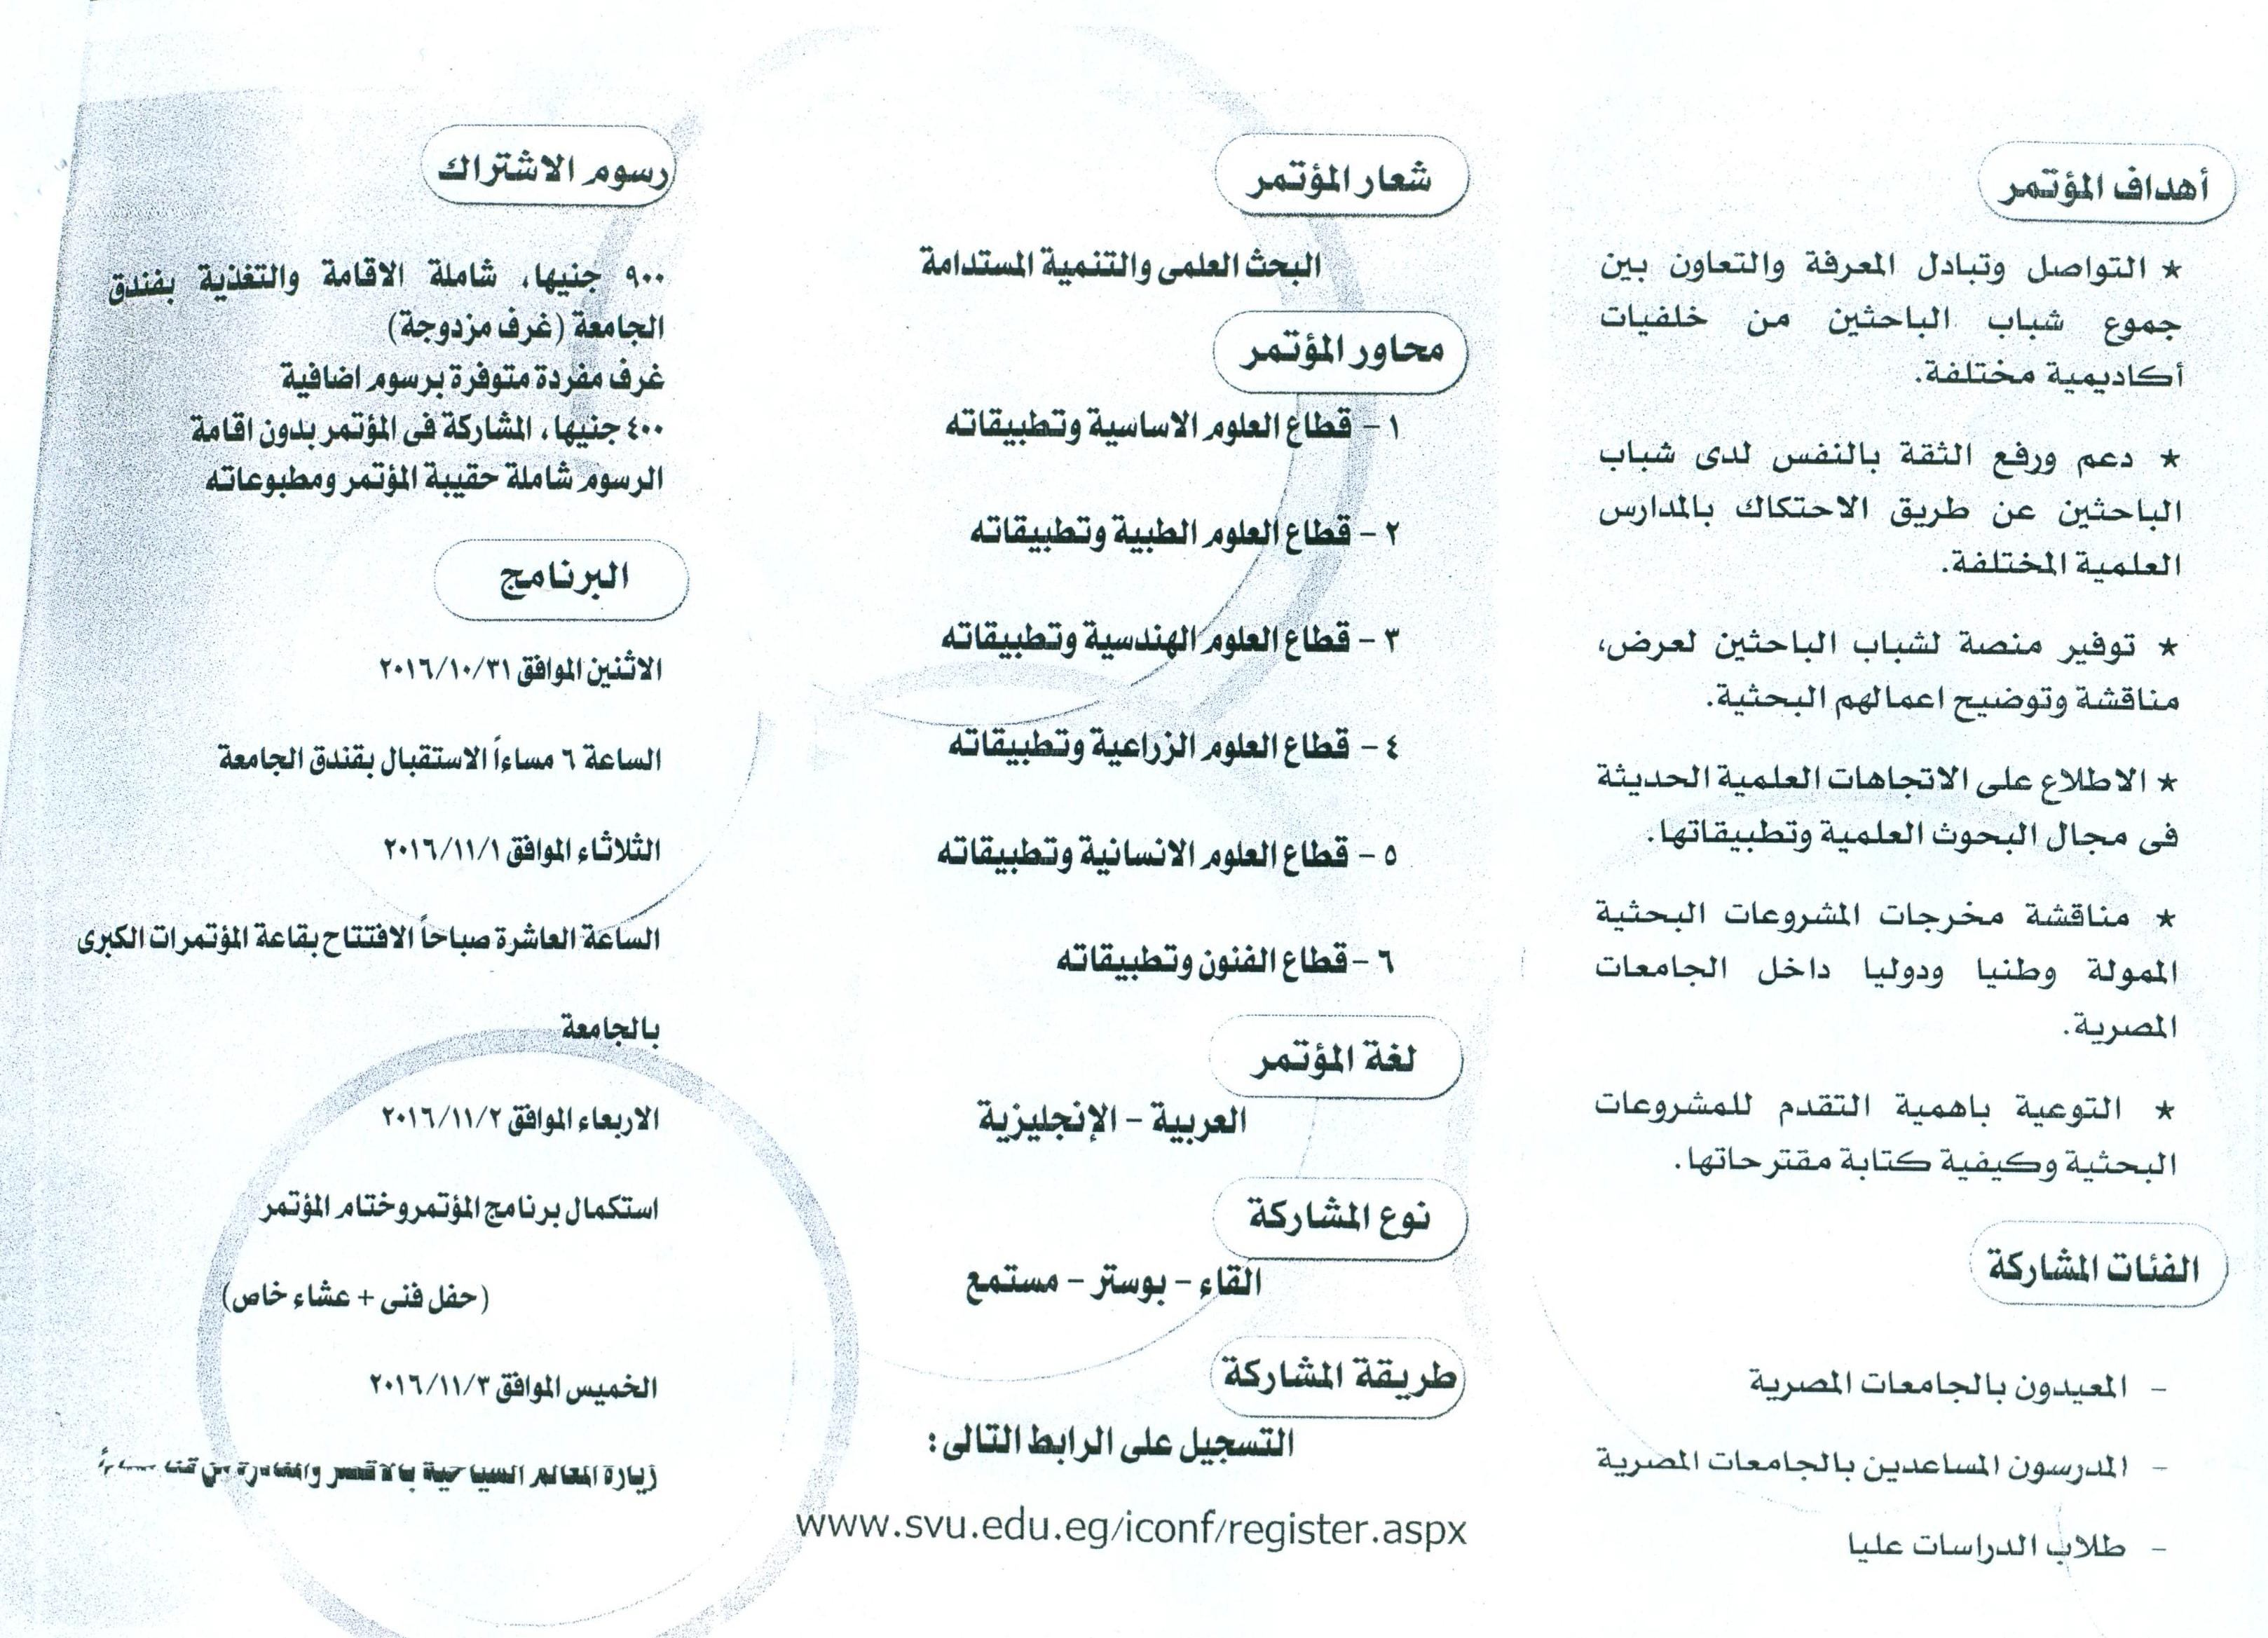 أهداف المؤتمر
★ التواصل وتبادل المعرفة والتعاون بين
جموع شباب الباحثين من خلفيات
أكاديمية مختلفة.
★ دعم ورفع الثقة بالنفس لدى شباب
الباحثين عن طريق الاحتكاك بالمدارس
العلمية المختلفة.
★ توفير منصة لشباب الباحثين لعرض،
مناقشة وتوضيح اعمالهم البحثية.
★ الاطلاع على الاتجاهات العلمية الحديثة
فى مجال البحوث العلمية وتطبيقاتها.
★ مناقشة مخرجات المشروعات البحثية
الممولة وطنيا ودوليا داخل الجامعات
المصرية.
★ التوعية باهمية التقدم للمشروعات
البحثية وكيفية كتابة مقترحاتها.
الفئات المشاركة
- المعيدون بالجامعات المصرية
- المدرسون المساعدين بالجامعات المصرية
- طلاب الدراسات عليا
شعار المؤتمر
البحث العلمى والتنمية المستدامة
محاور المؤتمر
١ - قطاع العلوم الاساسية وتطبيقاته
٢ - قطاع العلوم الطبية وتطبيقاته
٣ - قطاع العلوم الهندسية وتطبيقاته
٤ - قطاع العلوم الزراعية وتطبيقاته
٥ - قطاع العلوم الانسانية وتطبيقاته
٦ - قطاع الفنون وتطبيقاته
لغة المؤتمر
العربية - الإنجليزية
نوع المشاركة
القاء - بوستر - مستمع
طريقة المشاركة
التسجيل على الرابط التالى:
www.svu.edu.eg/iconf/register.aspx
رسوم الاشتراك
٩٠٠ جنيها، شاملة الاقامة والتغذية بفندق
الجامعة (غرف مزدوجة)
غرف مفردة متوفرة برسوم اضافية
٤٠٠ جنيها، المشاركة فى المؤتمر بدون اقامة
الرسوم شاملة حقيبة المؤتمر ومطبوعاته
البرنامج
الاثنين الموافق ٢٠١٦/١٠/٣١
الساعة ٦ مساءاً الاستقبال بقندق الجامعة
الثلاثاء الموافق ٢٠١٦/١١/١
الساعة العاشرة صباحاً الافتتاح بقاعة المؤتمرات الكبرى
بالجامعة
الاربعاء الموافق ٢٠١٦/١١/٢
استكمال برنامج المؤتمر وختام المؤتمر
(حفل فنى + عشاء خاص)
الخميس الموافق ٢٠١٦/١١/٣
زيارة المعالم السياحية بالاقصر والمغادرة من